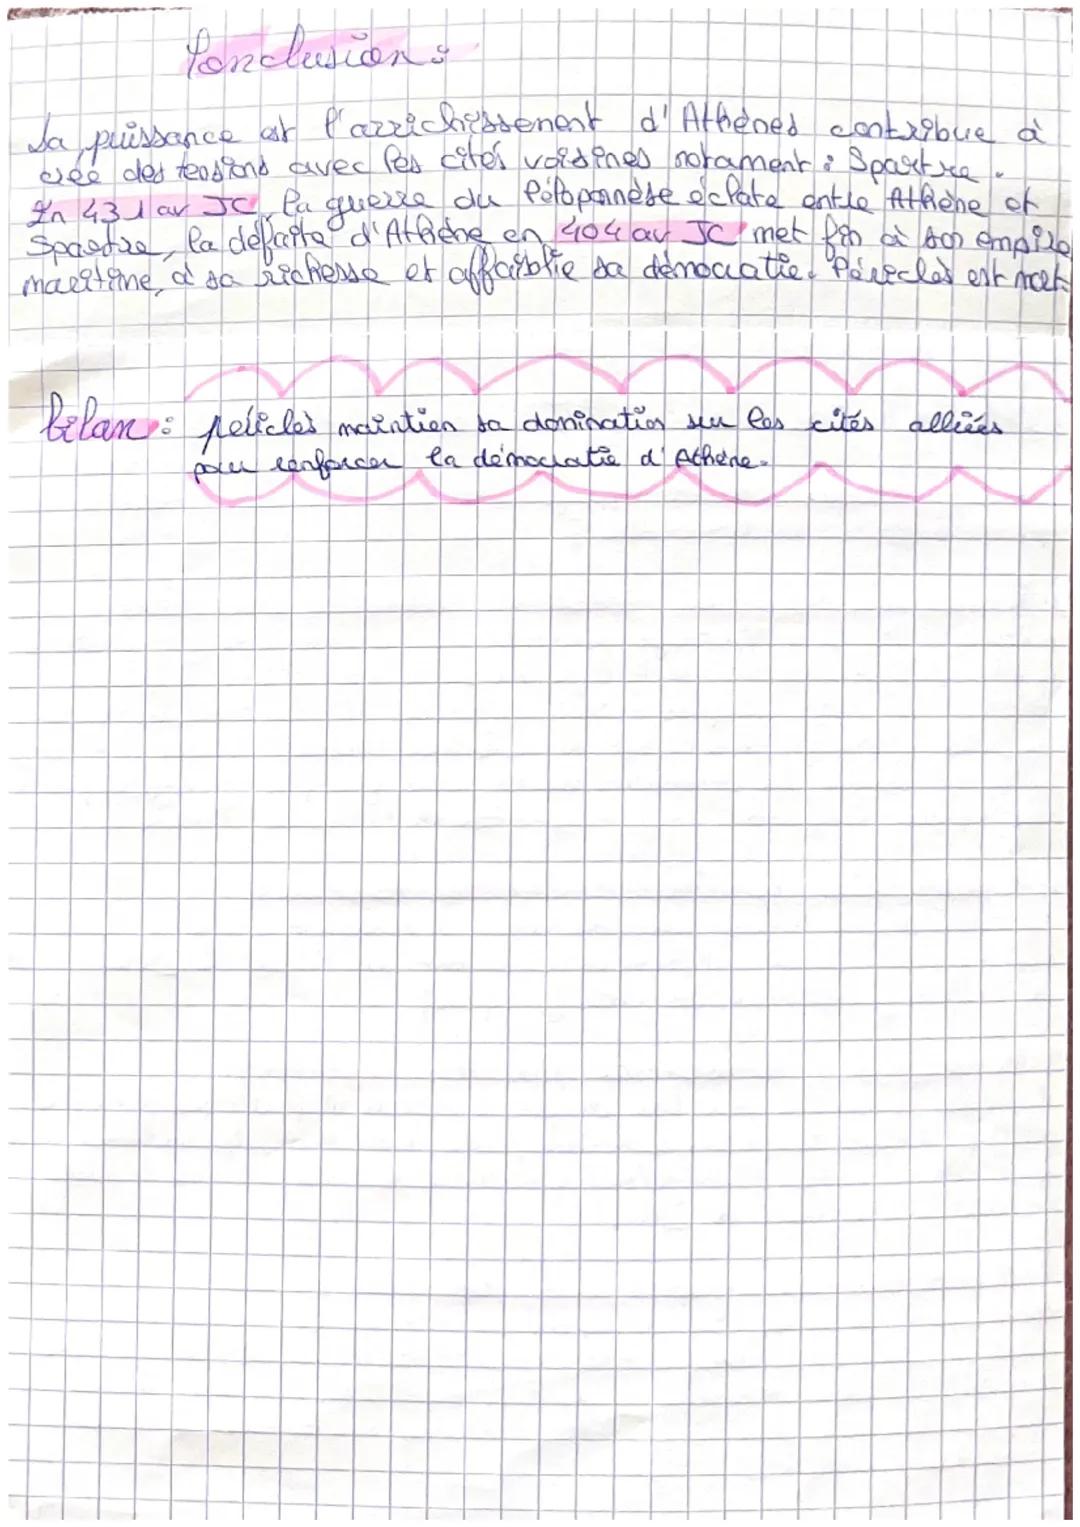 Conclusion :
La puissance est l'arrichissement d'Athènes contribue à
crée des tensions avec les cités voisines notament : Spartre.
En 431 av JC, la guerre du Péloponnèse éclate entre Athène et
Spartre, la défaite d'Athène en 404 av JC met fin à son empire
maritime, à sa richesse et affaiblie sa démocratie. Périclès est mort
bilan : périclès maintien sa domination sur les cités alliées
pour renforcer la démocratie d'Athène.